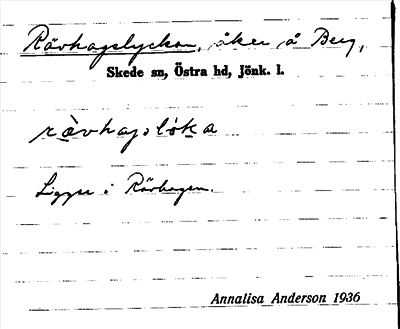 Rävhagslyckan, åker å Berg,
Skede sn, Östra hd, Jönk. l.
rävhagslòka
Ligger i Rävhagen.
Annalisa Anderson 1936